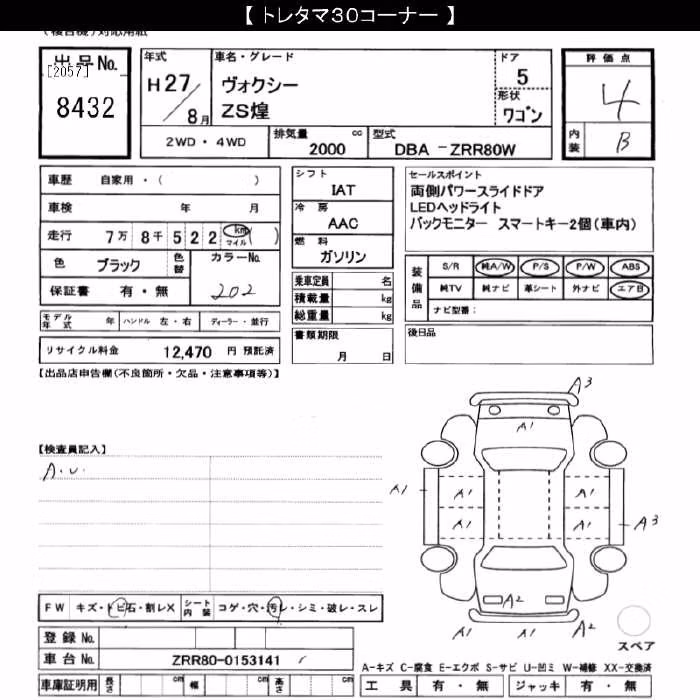 【 トレタマ３０コーナー 】
出品No.
[2057]
8432
年式
H27/8月
車名・グレード
ヴォクシー
ZS煌
ドア
5
形状
ワゴン
評価点
4
内装
B
2WD・4WD
排気量 cc
2000
型式
DBA -ZRR80W
車歴 自家用・( )
車検 年 月
走行 7万 8千 5 2 2 km マイル ( )
色 ブラック 色替 カラーNo.
202
保証書 有・無
モデル年式 年 ハンドル 左・右 ディーラー・並行
リサイクル料金 12,470 円 預託済
シフト
IAT
冷房
AAC
燃料
ガソリン
乗車定員 名
積載量 kg
総重量 kg
書類期限
月 日
セールスポイント
両側パワースライドドア
LEDヘッドライト
バックモニター スマートキー2個(車内)
装備品
S/R 純A/W P/S P/W ABS
純TV 純ナビ 革シート 外ナビ エアB
ナビ型番：
後日品
【出品店申告欄(不良箇所・欠品・注意事項等)】
【検査員記入】
A.U.
A3
A1
A1
A1
A1
A1
A1
A3
A2
A1
A2
スペア
FW キズ・トビ石・割レX シート内装 コゲ・穴・汚レ・シミ・破レ・スレ
登録No.
車台No. ZRR80-0153141
車庫証明用 長さ cm 幅 cm 高さ cm
A-キズ C-腐食 E-エクボ S-サビ U-凹ミ W-補修 XX-交換済
工具 有・無 ジャッキ 有・無